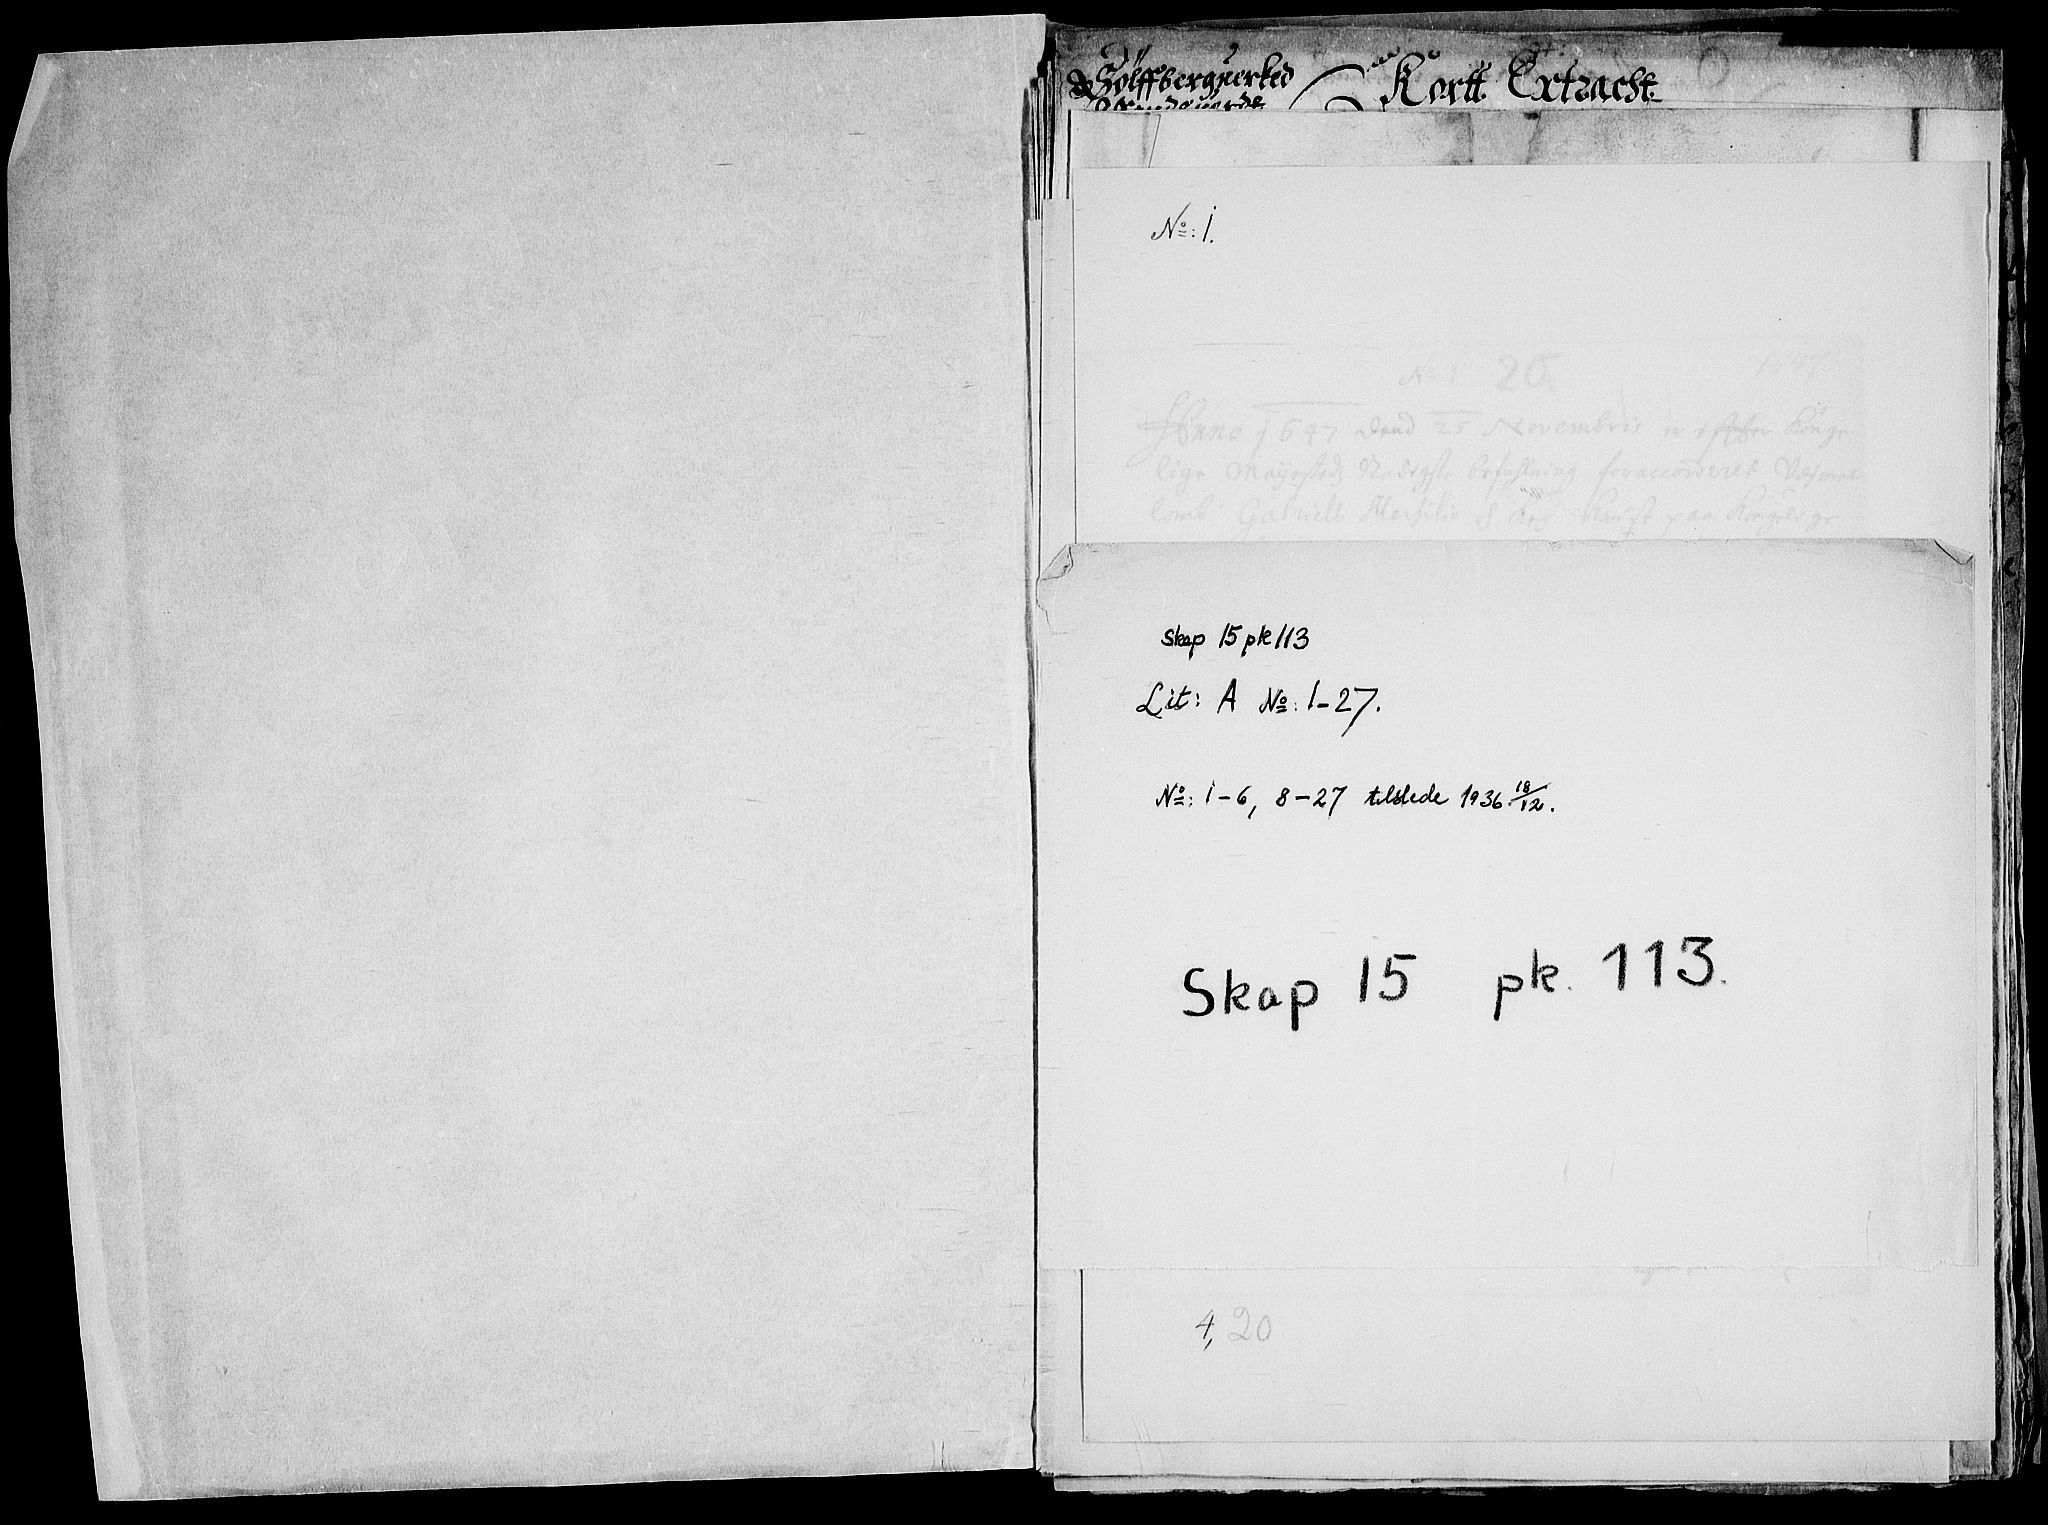 Sölffbergverked Kortt Extracht
No: 1.
No 1 20. 1647
Anno 1647 dend 25 Novembris er effter Konge
lige Mayestedz Naadigste befahlning foraccorderet
Gabriell Marsilio paa
Skap 15 pk 113
Lit: A No: 1-27.
No: 1-6, 8-27 tilstede 1936 18/12.
Skap 15 pk. 113.
4, 20